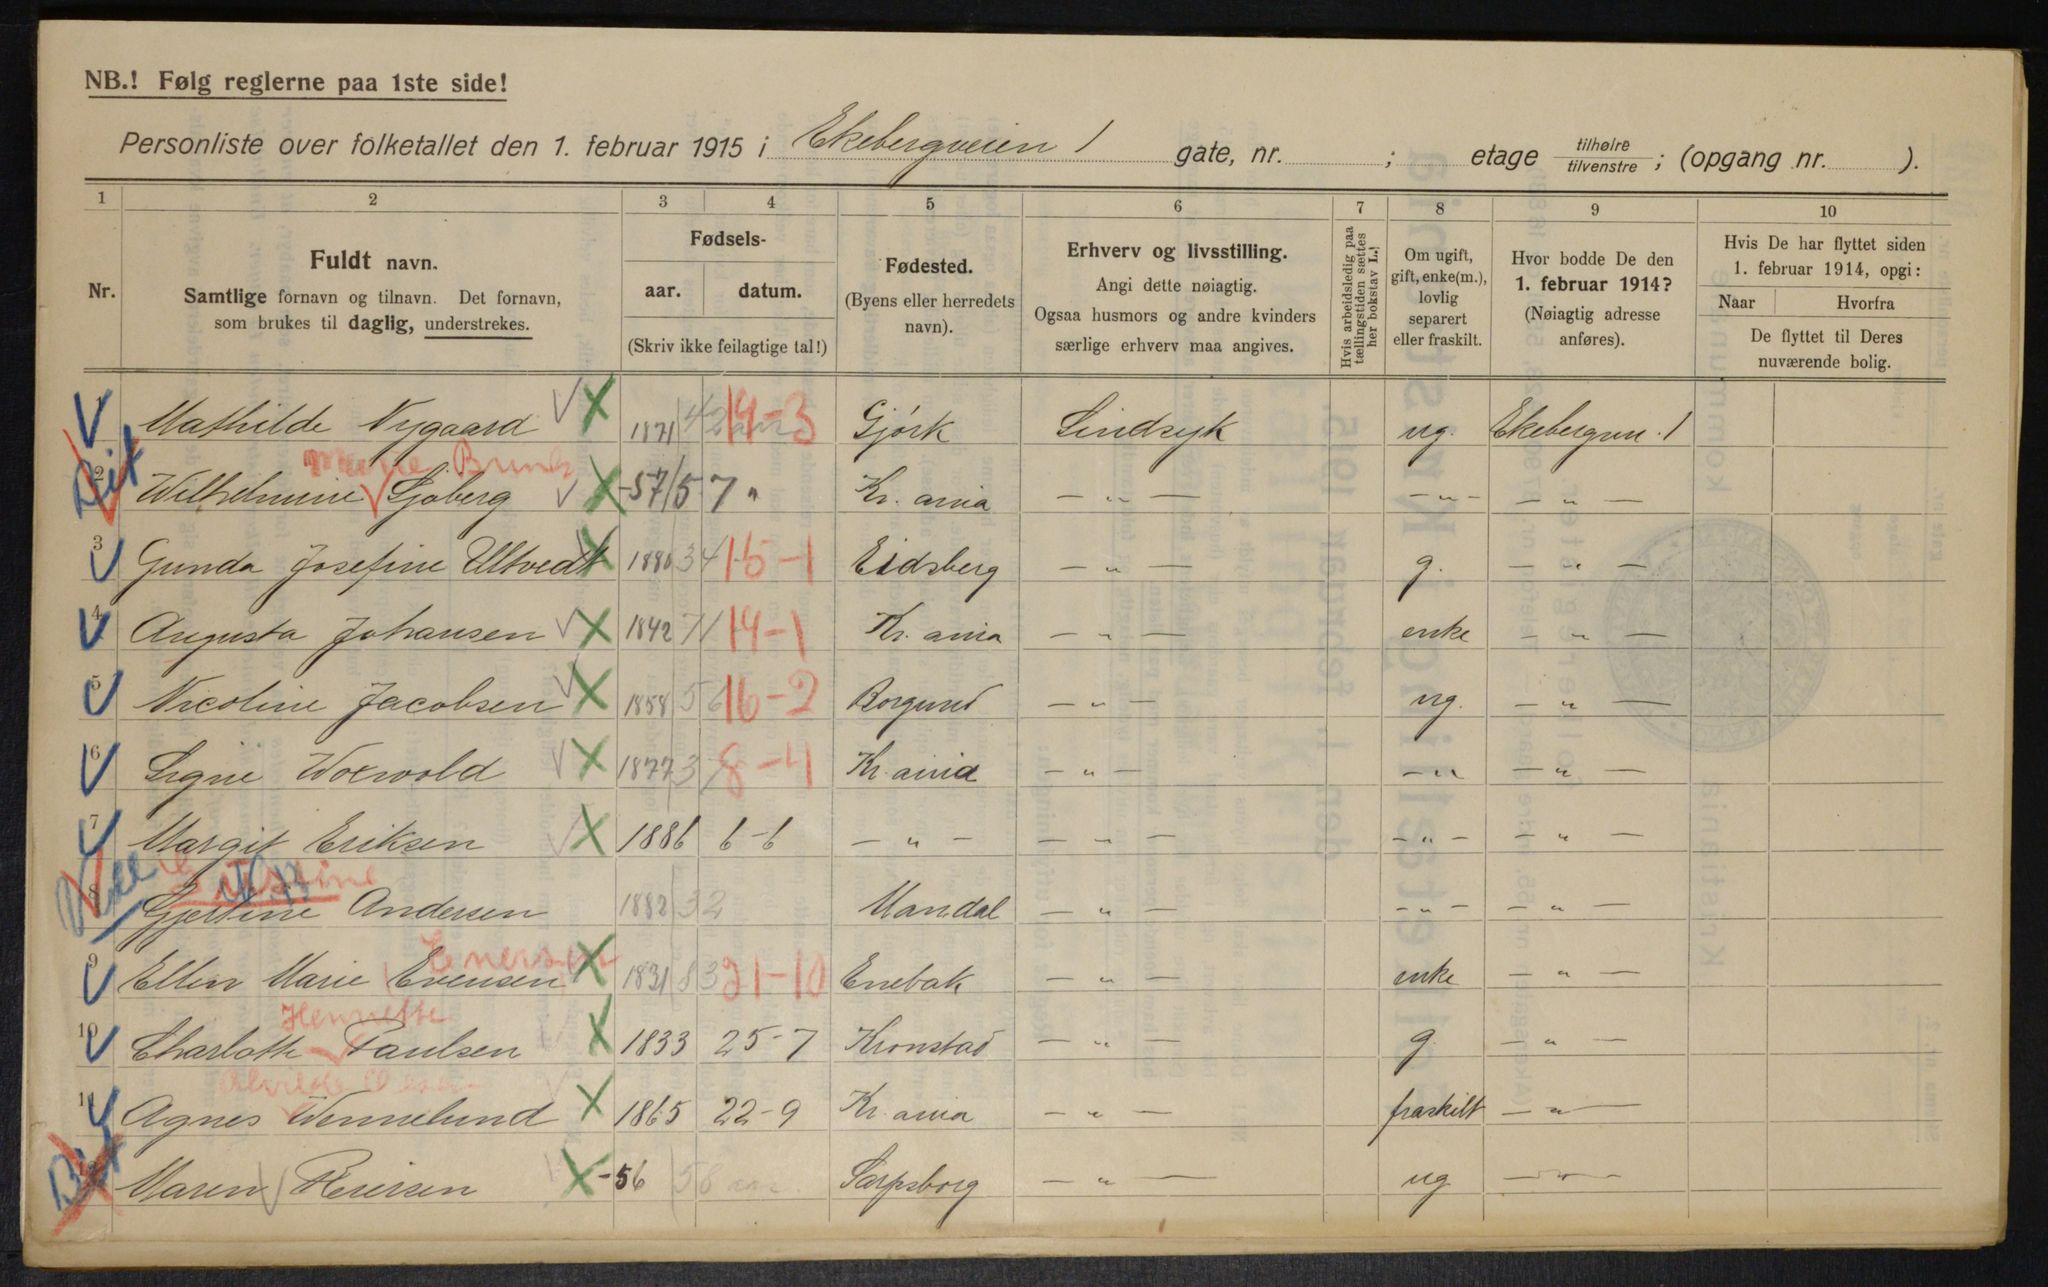 NB.! Følg reglerne paa 1ste side!
Personliste over folketallet den 1. februar 1915 i Ekebergveien 1 gate, nr. ; etage tilhøire/tilvenstre ; (opgang nr. ).
1 2 3 4 5 6 7 8 9 10
Nr. Fuldt navn. Samtlige fornavn og tilnavn. Det fornavn, som brukes til daglig, understrekes.
Fødsels- aar. datum. (Skriv ikke feilagtige tal!)
Fødested. (Byens eller herredets navn).
Erhverv og livsstilling. Angi dette nøiagtig. Ogsaa husmors og andre kvinders særlige erhverv maa angives.
Hvis arbeidsledig paa tællingstiden sættes her bokstav L.!
Om ugift, gift, enke(m.), lovlig separert eller fraskilt.
Hvor bodde De den 1. februar 1914? (Nøiagtig adresse anføres).
Hvis De har flyttet siden 1. februar 1914, opgi: Naar Hvorfra De flyttet til Deres nuværende bolig.
1 Mathilde Nygaard 1871 42 14-3 Gjøvk Sindsyk ug. Ekebergvn. 1
Marie
2 Wilhelmine Sjøberg -57 57 " Kr.ania — " — — " — — " —
3 Gunda Josefine Ultvedt 1880 34 15-1 Eidsberg — " — g. — " —
4 Augusta Johansen 1842 71 14-1 Kr.ania — " — enke — " —
5 Nicoline Jacobsen 1858 56 16-2 Borgund — " — ug. — " —
6 Signe Worwold 1877 37 8-4 Kr.ania — " — — " — — " —
7 Margit Eriksen 1886 6-6 — " — — " — — " — — " —
8 Gjertine Andersen 1882 32 Mandal — " — — " — — " —
Enersen
9 Ellen Marie Evensen 1831 83 21-10 Enebak — " — enke — " —
Henriette
10 Charlotte Paulsen 1833 25-7 Kronstad — " — g. — " —
Alvilde Olsen
11 Agnes Wennelund 1865 22-9 Kr.ania — " — fraskilt — " —
12 Maren Reiersen -56 58 Sarpsborg — " — ug — " —